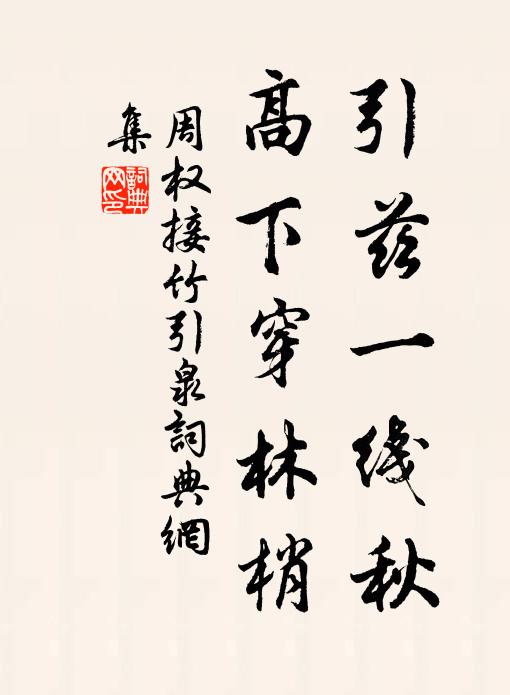 引兹一线秋
高下穿林梢
周权接竹引泉詞典網
集
詞典
网印